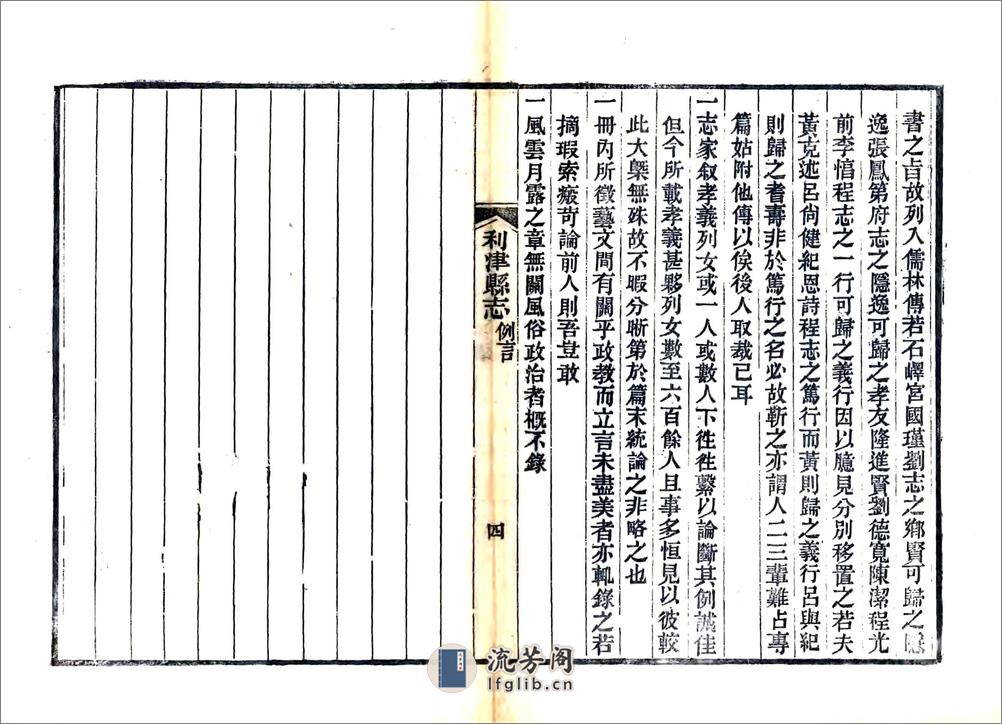 書之㫖故列入儒林傳若石嶧宮國瑾劉志之鄉賢可歸之隱
逸張鳳第府志之隱逸可歸之孝友隆進賢劉德寬陳潔程光
前李愭程志之一行可歸之義行因以臆見分別移置之若夫
黃克述呂尚健紀恩詩程志之篤行而黃則歸之義行呂與紀
則歸之耆壽非於篤行之名必故靳之亦謂人二三輩難占專
篇姑附他傳以俟後人取裁已耳
一志家叙孝義列女或一人或數人下徃徃繫以論斷其例誠佳
但今所載孝義甚夥列女數至六百餘人且事多恒見以彼較
此大槩無殊故不暇分晣第於篇末統論之非略之也
一冊內所徵藝文間有關乎政教而立言未盡美者亦輒錄之若
摘瑕索瘢苛論前人則吾豈敢
一風雲月露之章無關風俗政治者概不錄
利津縣志
例言
四
流芳阁
lfglib.cn